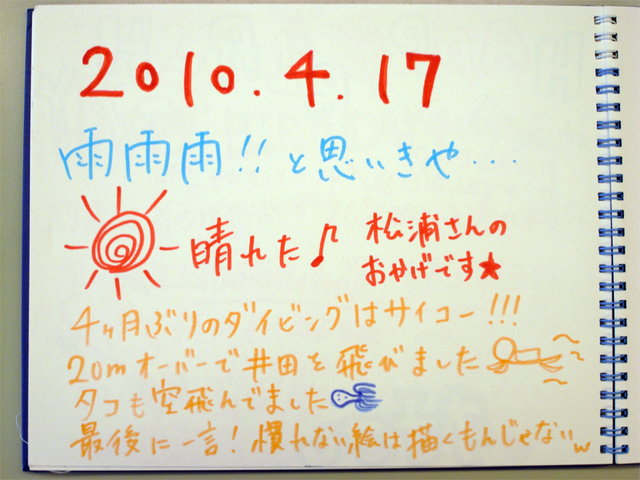 2010.4.17
雨雨雨!!と思いきや...
晴れた♪ 松浦さんの
おかげです★
4ヶ月ぶりのダイビングはサイコー!!!
20mオーバーで井田を飛びました
タコも空飛んでました
最後に一言!慣れない絵は描くもんじゃないw